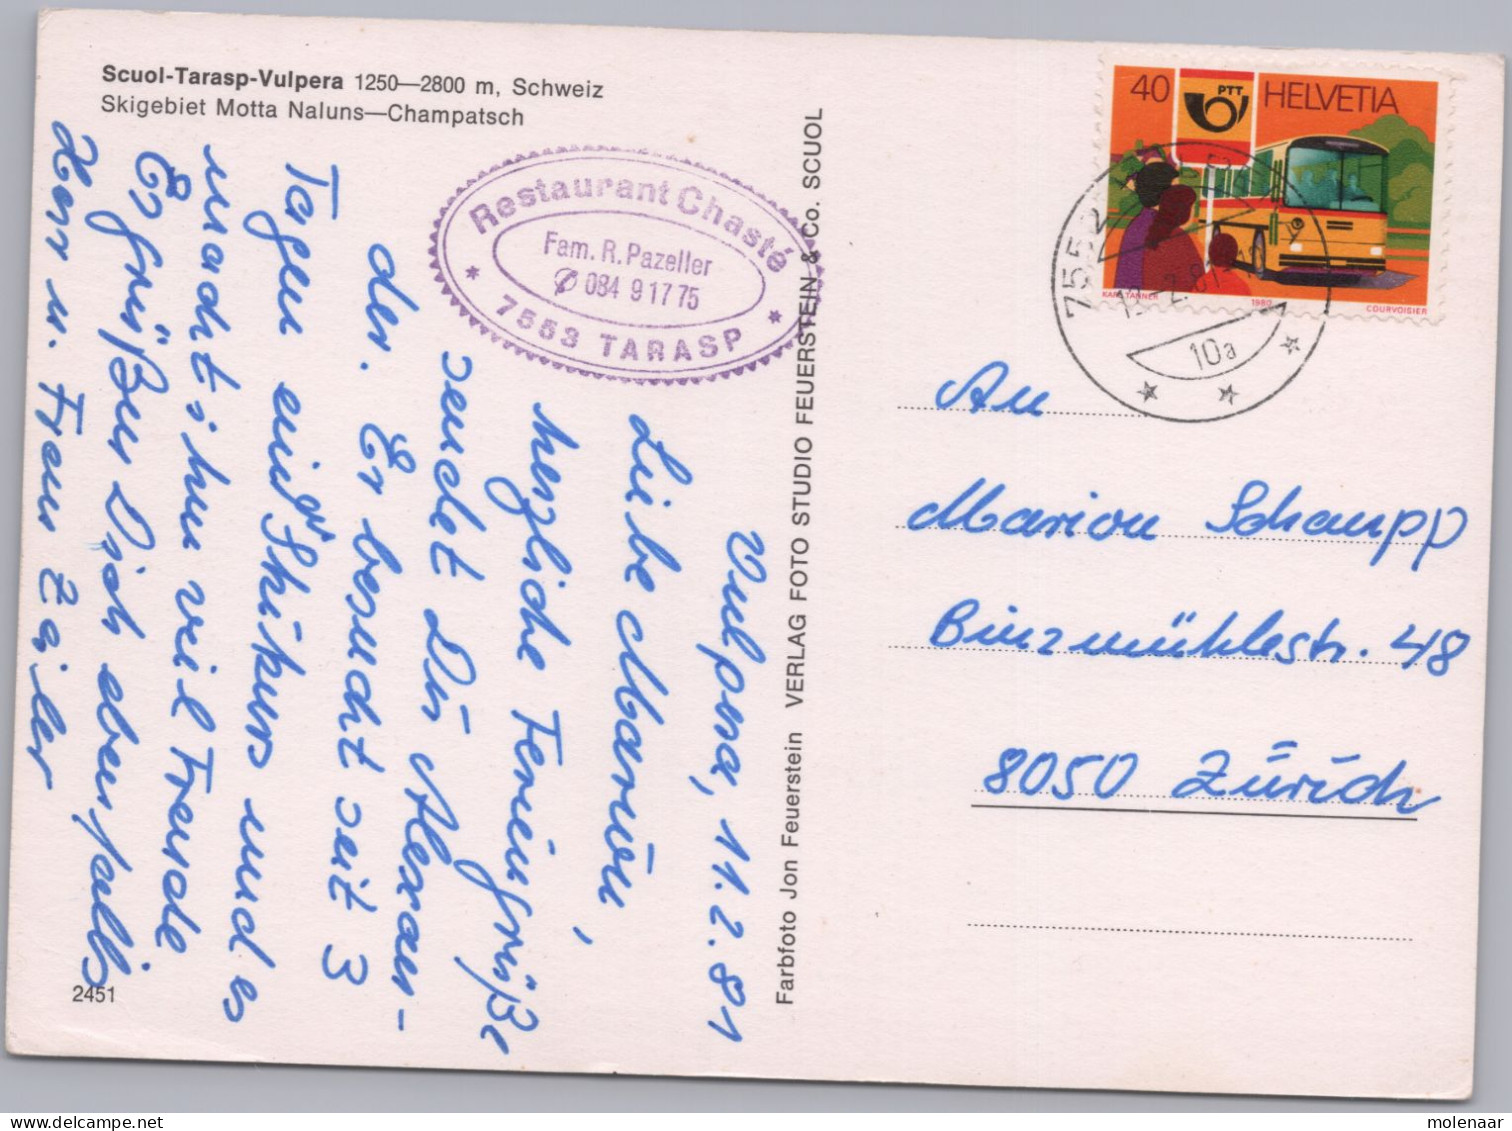 Scuol-Tarasp-Vulpera 1250—2800 m, Schweiz
Skigebiet Motta Naluns—Champatsch
Restaurant Chasté
Fam. R. Pazeller
✆ 084 9 17 75
* 7553 TARASP *
Vulpera, 11.2.81
Liebe Marion,
herzliche Feriengrüße
sendet Dir Alexan-
der. Er besucht seit 3
Tagen einen Skikurs und es
macht ihm viel Freude
Es grüßen Dich ebenfalls
Herr u. Frau Zailer
2451
Farbfoto Jon Feuerstein VERLAG FOTO STUDIO FEUERSTEIN & Co. SCUOL
40 PTT HELVETIA
KARL TANNER 1980 COURVOISIER
10a
An
Marion Schaupp
Binzmühlestr. 48
8050 Zürich
molenaar